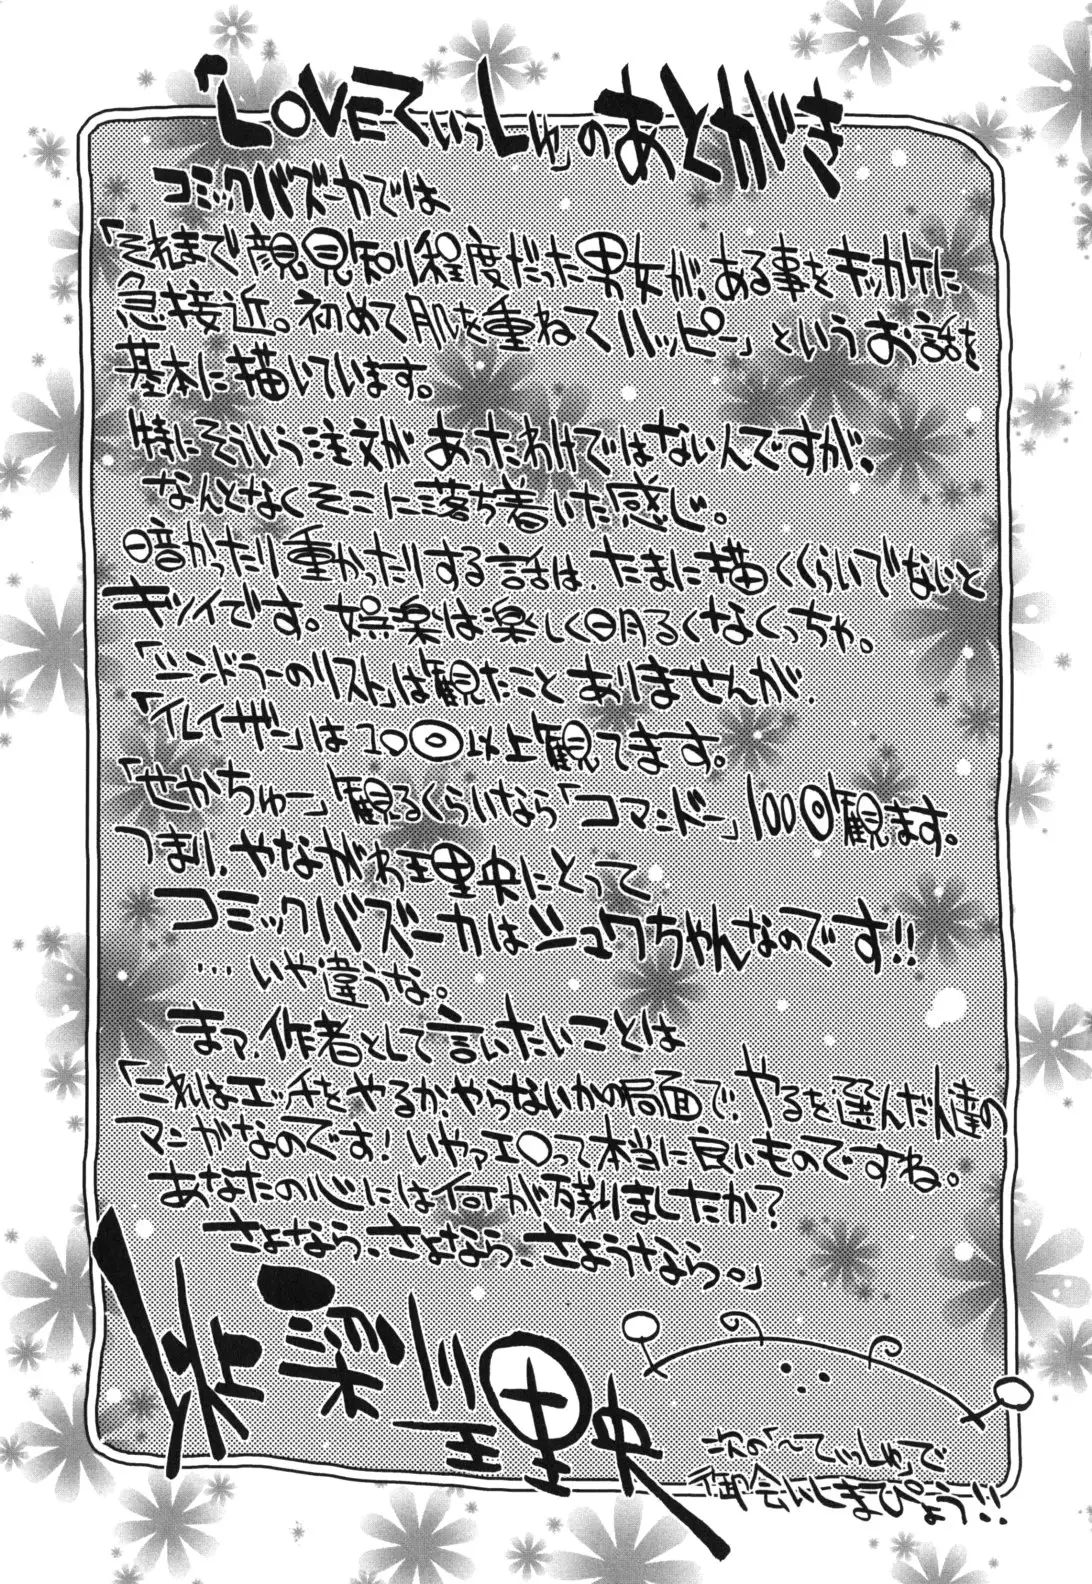 「LOVEてぃっしゅ」のあとがき
コミックバズーカでは
「それまで顔見知り程度だった男女が、ある事をキッカケに
急接近。初めて肌を重ねてハッピー」というお話を
基本に描いています。
特にそういう注文があったわけではないんですが。
なんとなくそこに落ち着いた感じ。
暗かったり重かったりする話は、たまに描くくらいでないと
キツイです。娯楽は楽しく明るくなくっちゃ。
「シンドラーのリスト」は観たことありませんが、
「イレイザー」は10回以上観てます。
「せかちゅー」観るくらいなら「コマンドー」100回観ます。
つまり、やながわ理央にとって
コミックバズーカはシュワちゃんなのです!!
…いや違うな。
まァ、作者として言いたいことは
「これはエッチをやるか、やらないかの局面で、やるを選んだ人達の
マンガなのです!いやァエロって本当に良いものですね。
あなたの心には何が残りましたか?
さよなら、さよなら、さようなら。」
理央
次の「~てぃっしゅ」で
御会いしまぴょう!!